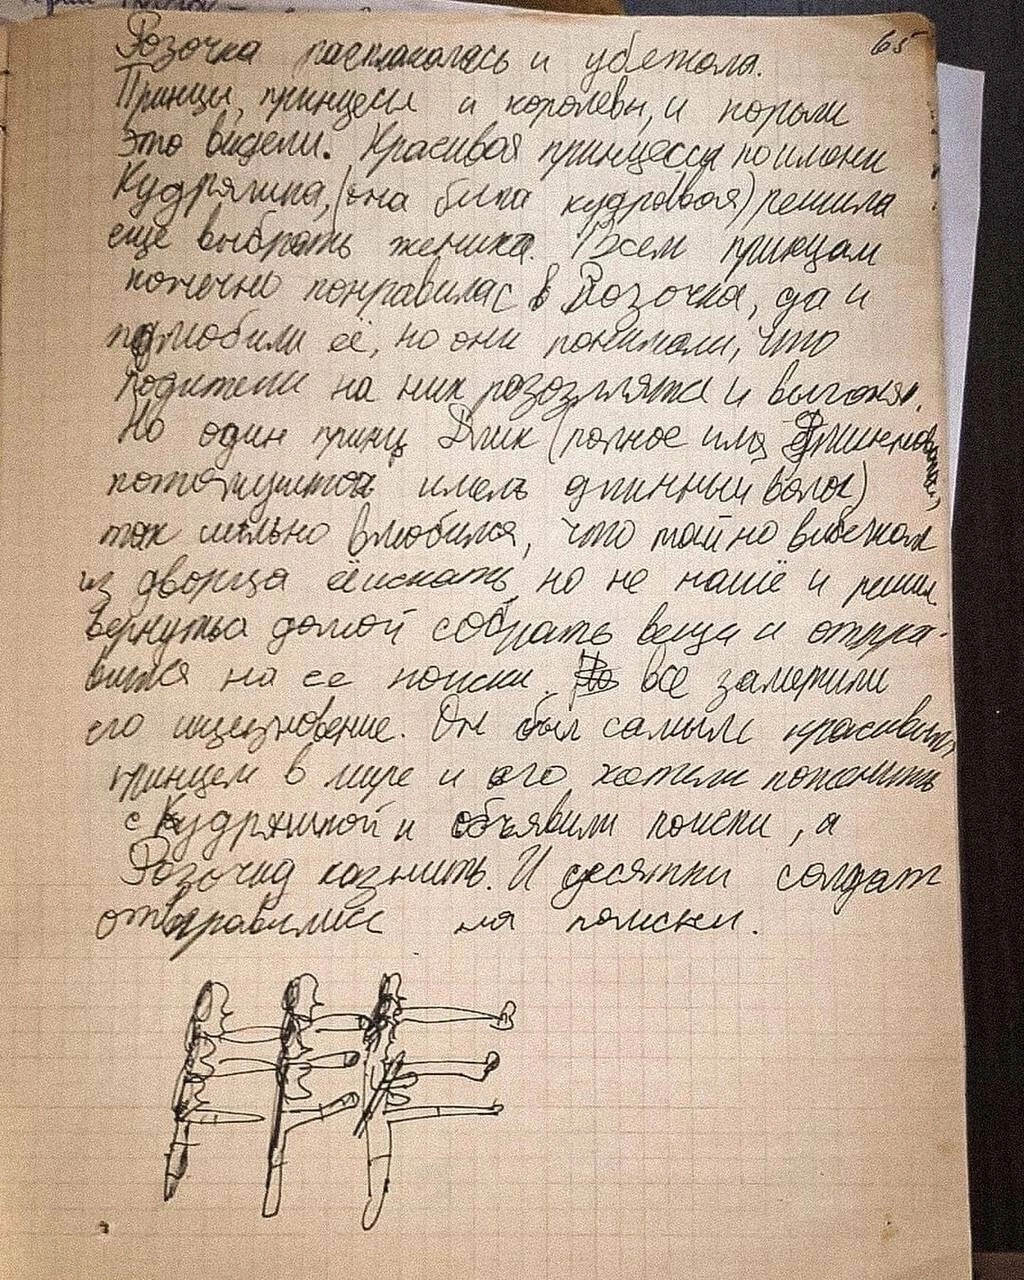 65
Розочка расплакалась и убежала.
Принцы, принцесы и королевы, и короли
это видели. Красивая принцесса по имени
Кудряшка, (она была кудрявая) решила
ещё выбрать жениха. Всем принцам
конечно понравилась Розочка, да и
полюбили её, но они понимали, что
родители на них разозлятся и выгонят.
Но один принц Длик (полное имя
потому что имел длинный волос)
так сильно влюбился, что тайно выбежал
из дворца её искать, но не нашё и решил
вернутьса домой собрать вещи и отпра-
вится на её поиски. все заметили
его ищезновение. Он был самым красивым
принцем в мире и его хотели поженить
с Кудряшкой и объявили поиски, а
Розочку казнить. И десятки солдат
отправились на поиски.